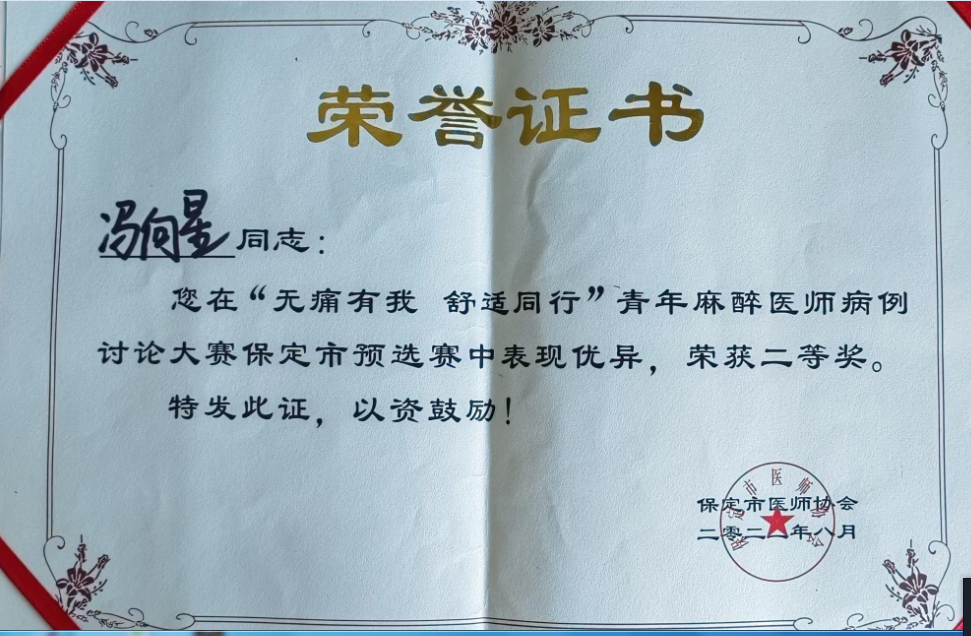 荣誉证书
冯向星同志：
您在“无痛有我 舒适同行”青年麻醉医师病例
讨论大赛保定市预选赛中表现优异，荣获二等奖。
特发此证，以资鼓励！
保定市医师协会
二零二二年八月
保定市医师协会